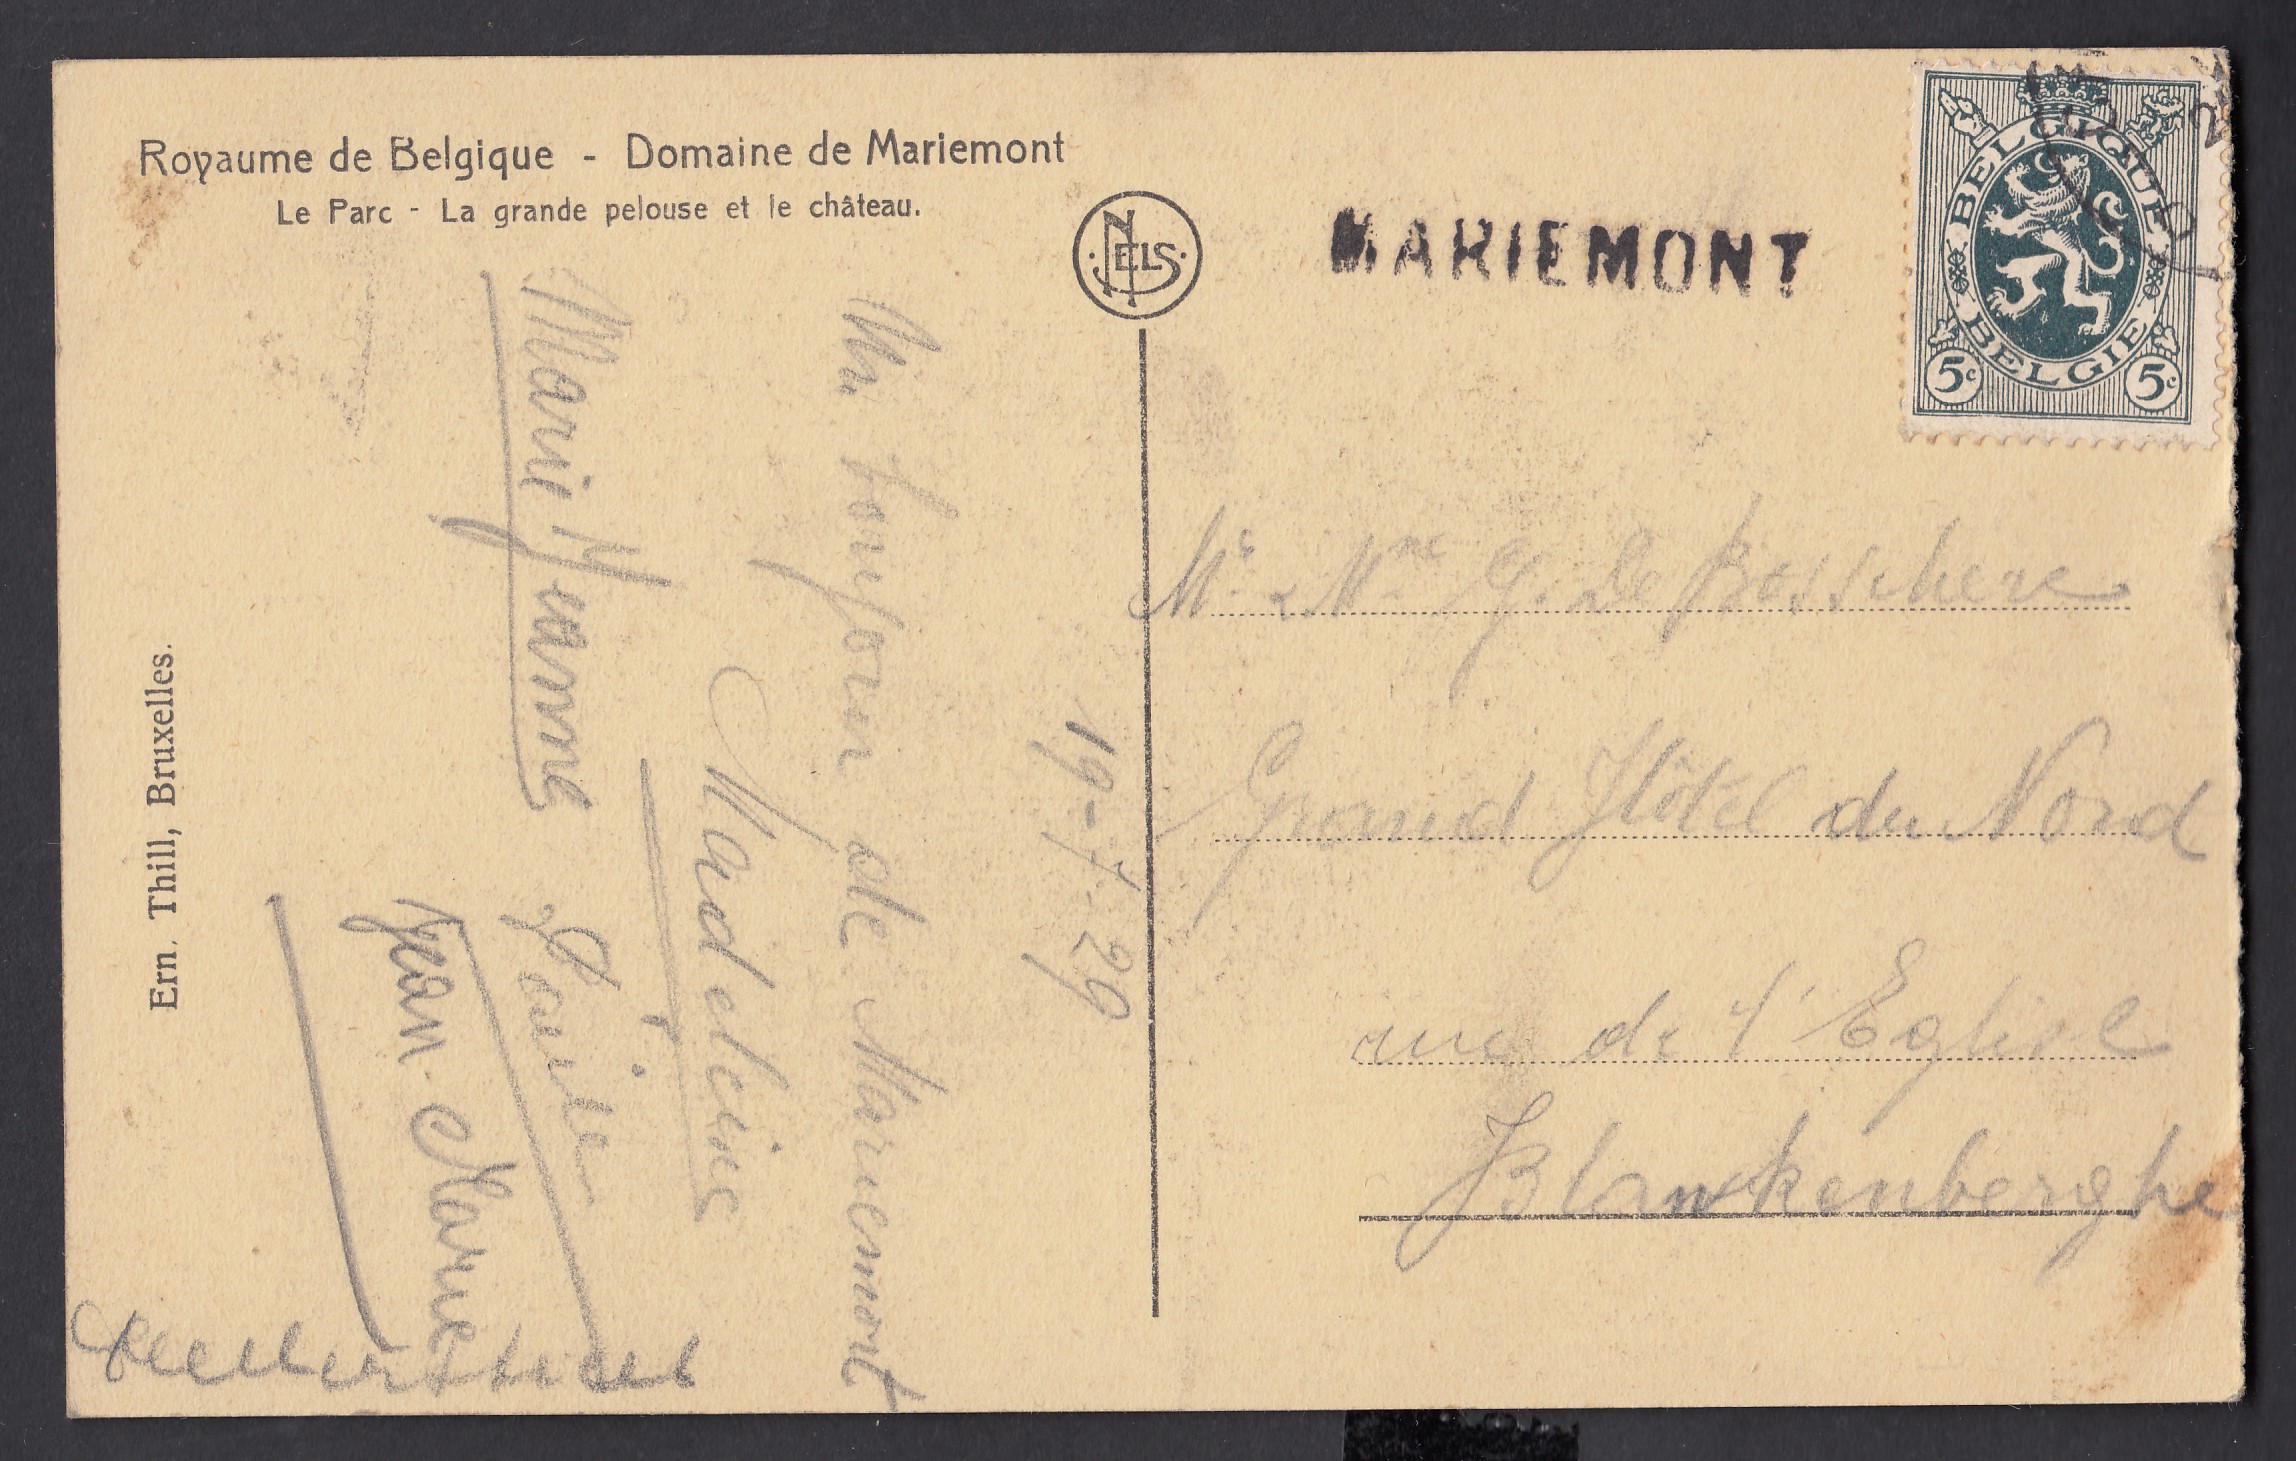 Royaume de Belgique - Domaine de Mariemont
Le Parc - La grande pelouse et le château.
NELS
MARIEMONT
BELGIQUE
BELGIE
5c 5c
Ern. Thill, Bruxelles.
19-7-29
Un bonjour de Mariemont
Madeleine
Marie Jeanne
Louise
Jean Marie
Mr & Mme G. De Besschere
Grand Hôtel du Nord
rue de l'Eglise
Blankenberghe